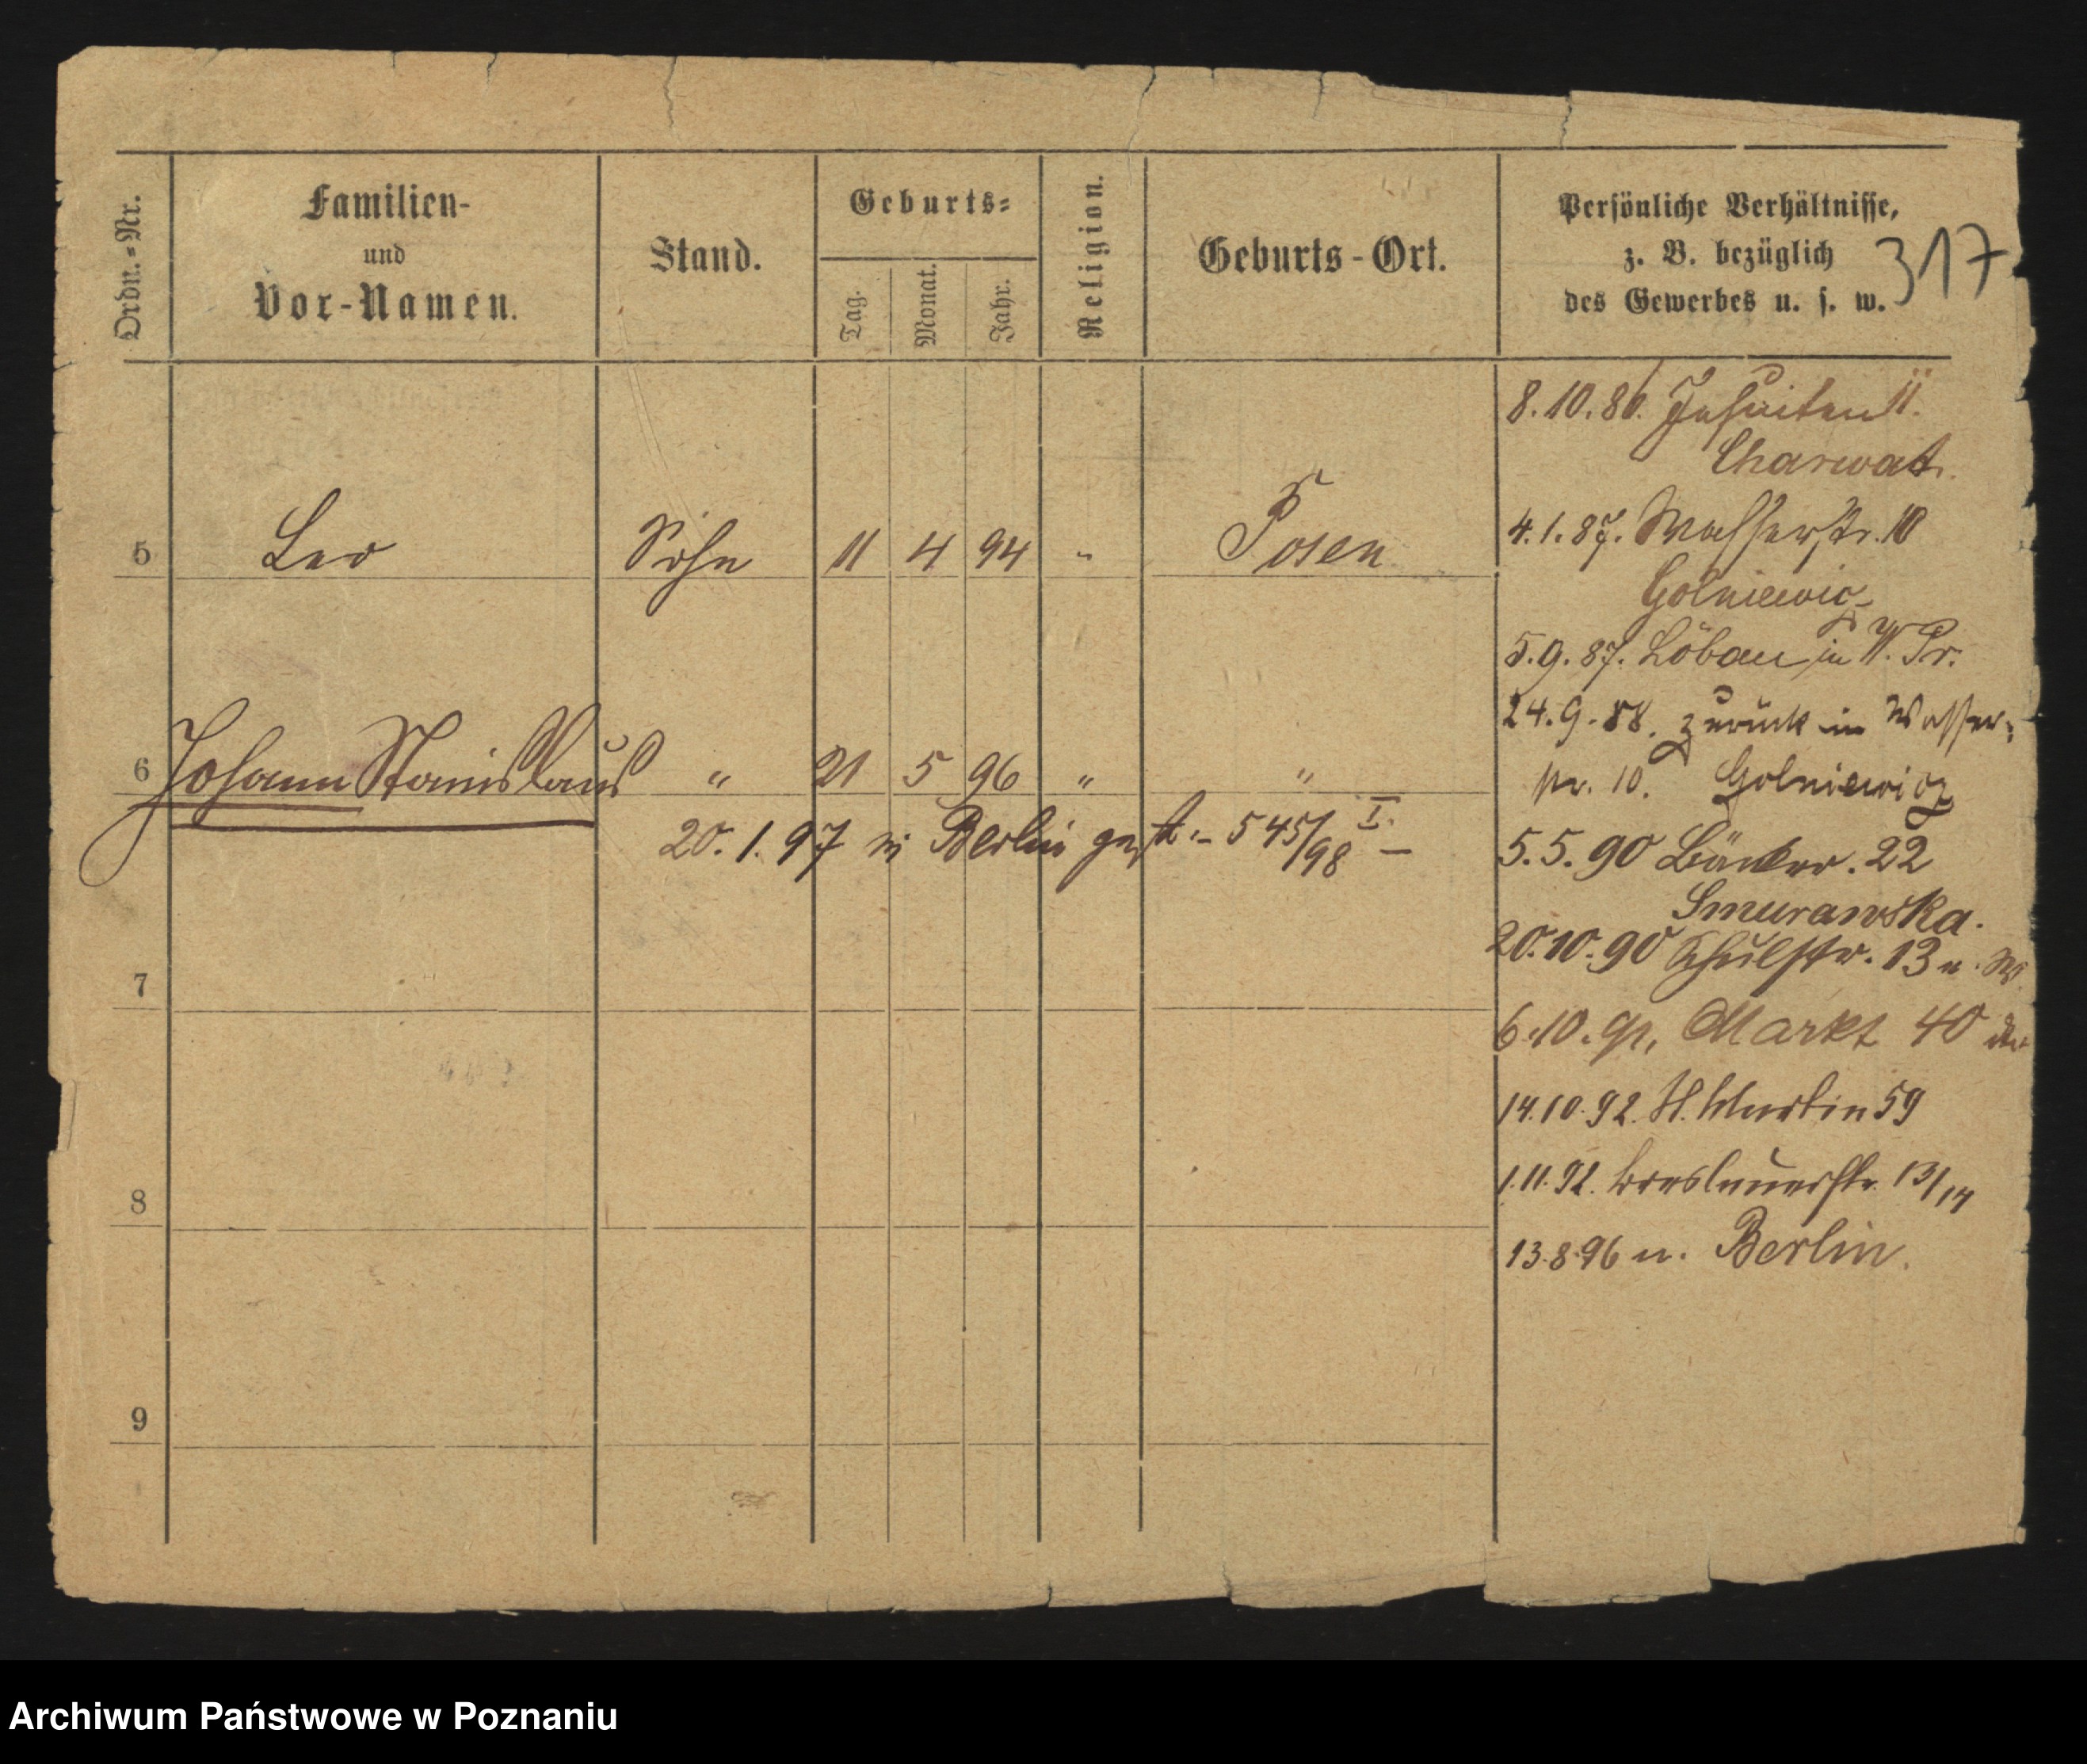 Ordn.-Nr.
Familien-
und
Vor-Namen.
Stand.
Geburts-
Tag.
Monat.
Jahr.
Religion.
Geburts-Ort.
Persönliche Verhältnisse,
z. B. bezüglich
des Gewerbes u. s. w.
317
8.10.86. Jesuiten 11.
Charwat.
5 Leo Sohn 11 4 94 " Posen
4.1.87. Wasserstr. 10
Golniewicz
5.9.87. Löbau in W. Pr.
24.9.88. zurück in Wasser-
str. 10. Golniewicz
6 Johann Stanislaus " 21 5 96 " "
20.1.97 in Berlin gest. - 545/98 I. -
5.5.90 Bäcker. 22
Smurawska.
20.10.90 Schulstr. 13 n. W.
7
6.10.91. Markt 40
14.10.92. St. Martin 59
1.11.92. Breslauerstr. 13/14
8
13.8.96 n. Berlin.
9
Archiwum Państwowe w Poznaniu